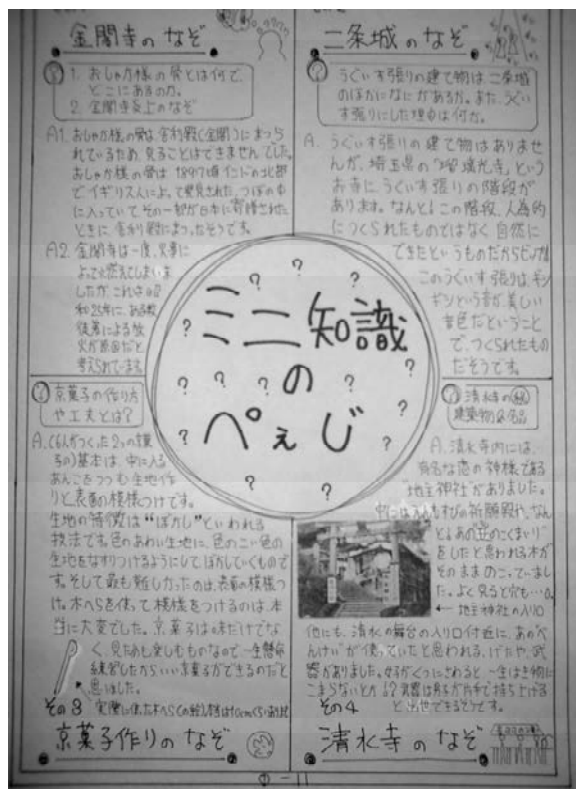 金閣寺のなぞ
1. おしゃか様の骨とは何で、
どこにあるのか。
2. 金閣寺炎上のなぞ
A1. おしゃか様の骨は舎利殿(金閣)にまつら
れているため、見ることはできませんでした。
おしゃか様の骨は1897頃インドの北部
でイギリス人によって発見された、つぼの中
に入っていてその一部が日本に寄贈された
ときに、舎利殿にまつったそうです。
A2. 金閣寺は一度、火事に
よって燃えてしまいま
したが、これは昭
和25年に、ある
徒弟による放
火が原因だと
考えられています。
二条城のなぞ
うぐいす張りの建て物は、二条城
のほかになにがあるか。また、うぐい
す張りにした理由は何か。
A. うぐいす張りの建て物はありませ
んが、埼玉県の「瑠璃光寺」という
お寺に、うぐいす張りの階段が
あります。なんと!この階段、人為的
につくられたものではなく自然に
できたというものだからビックリ!
このうぐいす張りは、ギシ
ギシという音が美しい
音色だということ
で、つくられたもの
だそうです。
ミニ知識
の
ぺぇじ
京菓子の作り方
や工夫とは?
A. (6人がつくった2つの菓
子の)基本は、中に入る
あんこをつつむ生地作
りと、表面の模様つけです。
生地の特徴は"ぼかし"といわれる
技法です。色のあわい生地に、色のこい色の
生地をなすりつけるようにしてぼかしていくもので
す。そして最も難しかったのは、表面の模様つ
け。木ベラを使って模様をつけるのは、本
当に大変でした。京菓子は味だけでな
く、見ためも楽しむものなので、一生懸命
練習したからいい京菓子ができるのだと
思いました。
その3
京菓子作りのなぞ
清水寺の㊙
建築物&名品
A. 清水寺内には、
有名な恋の神様である
"地主神社"がありました。
中には、えんむすびの祈願殿や、なん
と!あの"丑のこくまいり"
をしたと思われる木が
そのままのこっていまし
た。よく見ると穴も…。
← 地主神社の入り口
他にも、清水の舞台の入り口付近に、あの"べ
んけい"が使っていたと思われる、げたや、武
器がありました。女子がくつにさわると、一生はき物に
こまらないとか!?武器は男子が片手で持ち上げる
と出世できるそうです。
その4
清水寺のなぞ
①-11